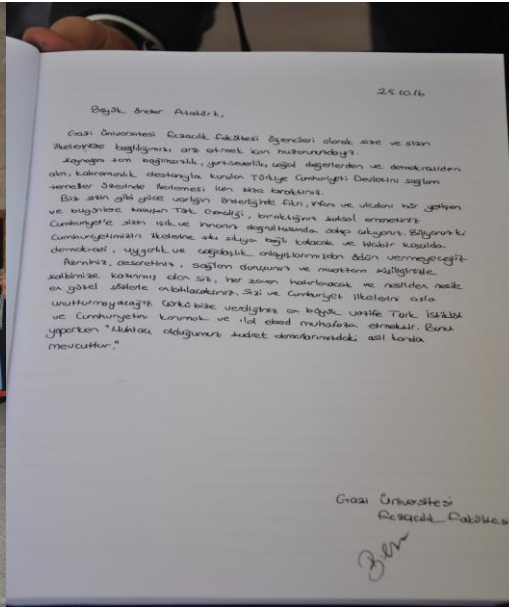 25.10.16
Büyük Önder Atatürk,
Gazi Üniversitesi Eczacılık Fakültesi öğrencileri olarak size ve sizin
ilkelerinize bağlılığımızı arz etmek için huzurunuzdayız.
Kaynağını tam bağımsızlık, yurtseverlik, ulusal değerlerden ve demokrasiden
alan, kahramanlık destanıyla kurulan Türkiye Cumhuriyeti Devletini sağlam
temeller üzerinde ilerlemesi için bize bıraktınız.
Biz sizin gibi yüce varlığın önderliğinde fikri, irfanı ve vicdanı hür yetişen
ve bugünlere kavuşan Türk Gençliği, bıraktığınız kutsal emanetiniz
Cumhuriyet'e sizin ışık ve inancınız doğrultusunda sahip çıkıyoruz. Biliyoruz ki
Cumhuriyetimizin ilkelerine sıkı sıkıya bağlı kalacak ve hiçbir koşulda
demokrasi, uygarlık ve çağdaşlık anlayışlarımızdan ödün vermeyeceğiz.
Azminiz, cesaretiniz, sağlam duruşunuz ve muazzam kişiliğinizle
kalbimize kazınmış olan siz, her zaman hatırlanacak ve nesilden nesile
en güzel sözlerle anlatılacaksınız. Sizi ve Cumhuriyet ilkelerini asla
unutturmayacağız çünkü bize verdiğiniz en büyük vazife Türk İstiklal
ve Cumhuriyetini korumak ve ilal ebed muhafaza etmektir. Bunu
yaparken "Muhtaç olduğumuz kudret damarlarımızdaki asil kanda
mevcuttur."
Gazi Üniversitesi
Eczacılık Fakültesi